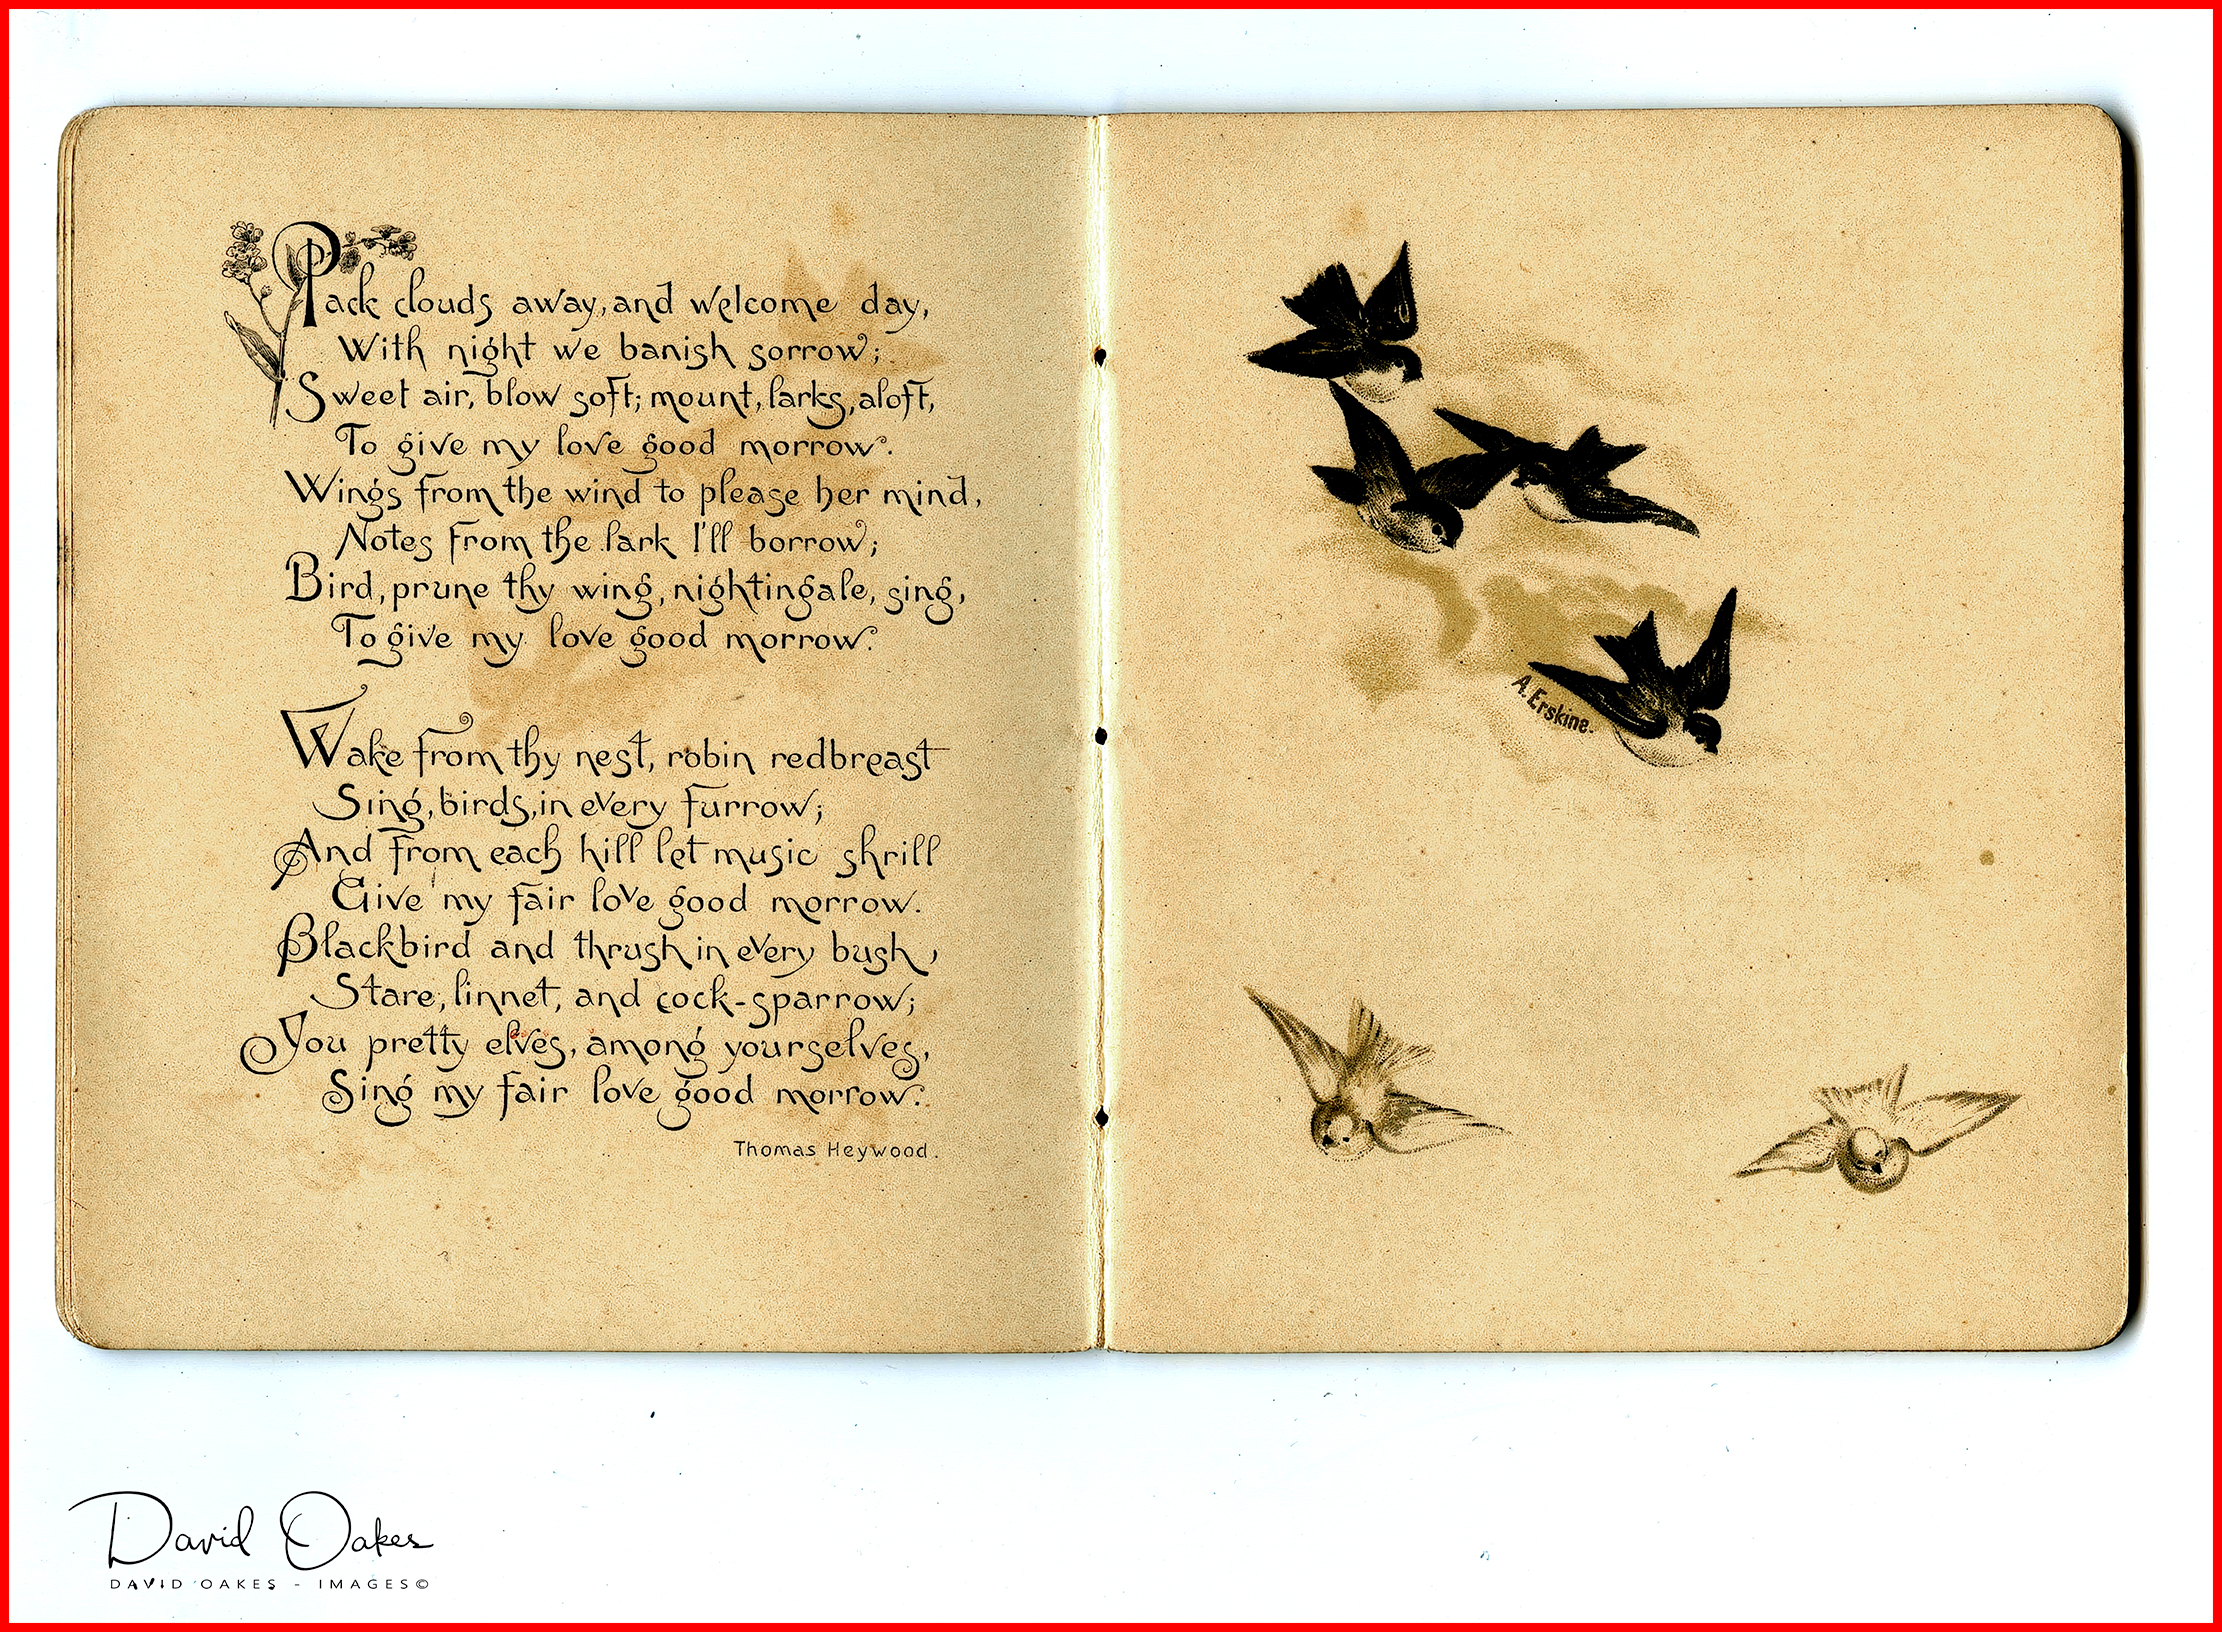 Pack clouds away, and welcome day,
With night we banish sorrow;
Sweet air, blow soft; mount, larks, aloft,
To give my love good morrow.
Wings from the wind to please her mind,
Notes from the lark I'll borrow;
Bird, prune thy wing, nightingale, sing,
To give my love good morrow.
Wake from thy nest, robin redbreast
Sing, birds, in every furrow;
And from each hill let music shrill
Give my fair love good morrow.
Blackbird and thrush in every bush,
Stare, linnet, and cock-sparrow;
You pretty elves, among yourselves,
Sing my fair love good morrow.
Thomas Heywood.
A. Erskine.
David Oakes
DAVID OAKES - IMAGES©